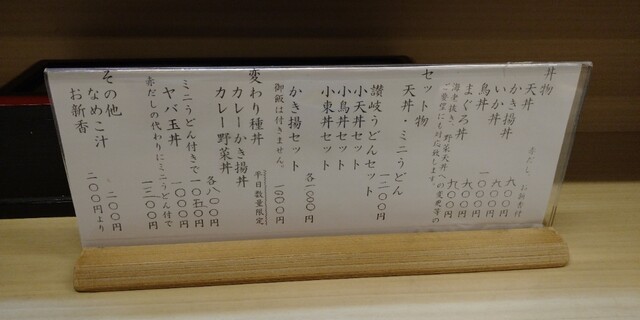 丼物
赤だし、お新香付
天丼 九〇〇円
かき揚丼 九〇〇円
いか丼 九〇〇円
鳥丼 一〇〇〇円
まぐろ丼 九〇〇円
海老抜き、野菜天丼への変更等の
ご要望にも対応致します。
セット物
天丼・ミニうどん
讃岐うどんセット 一二〇〇円
小天丼セット
小鳥丼セット
小東丼セット 各一〇〇〇円
かき揚セット 一〇〇〇円
御飯は付きません。
変わり種丼 平日数量限定
カレーかき揚丼
カレー野菜丼 各八〇〇円
ミニうどん付きで 一〇五〇円
ヤバ玉丼 一〇〇〇円
赤だしの代わりにミニうどん付で 一二〇〇円
その他
なめこ汁 二〇〇円
お新香 二〇〇円より